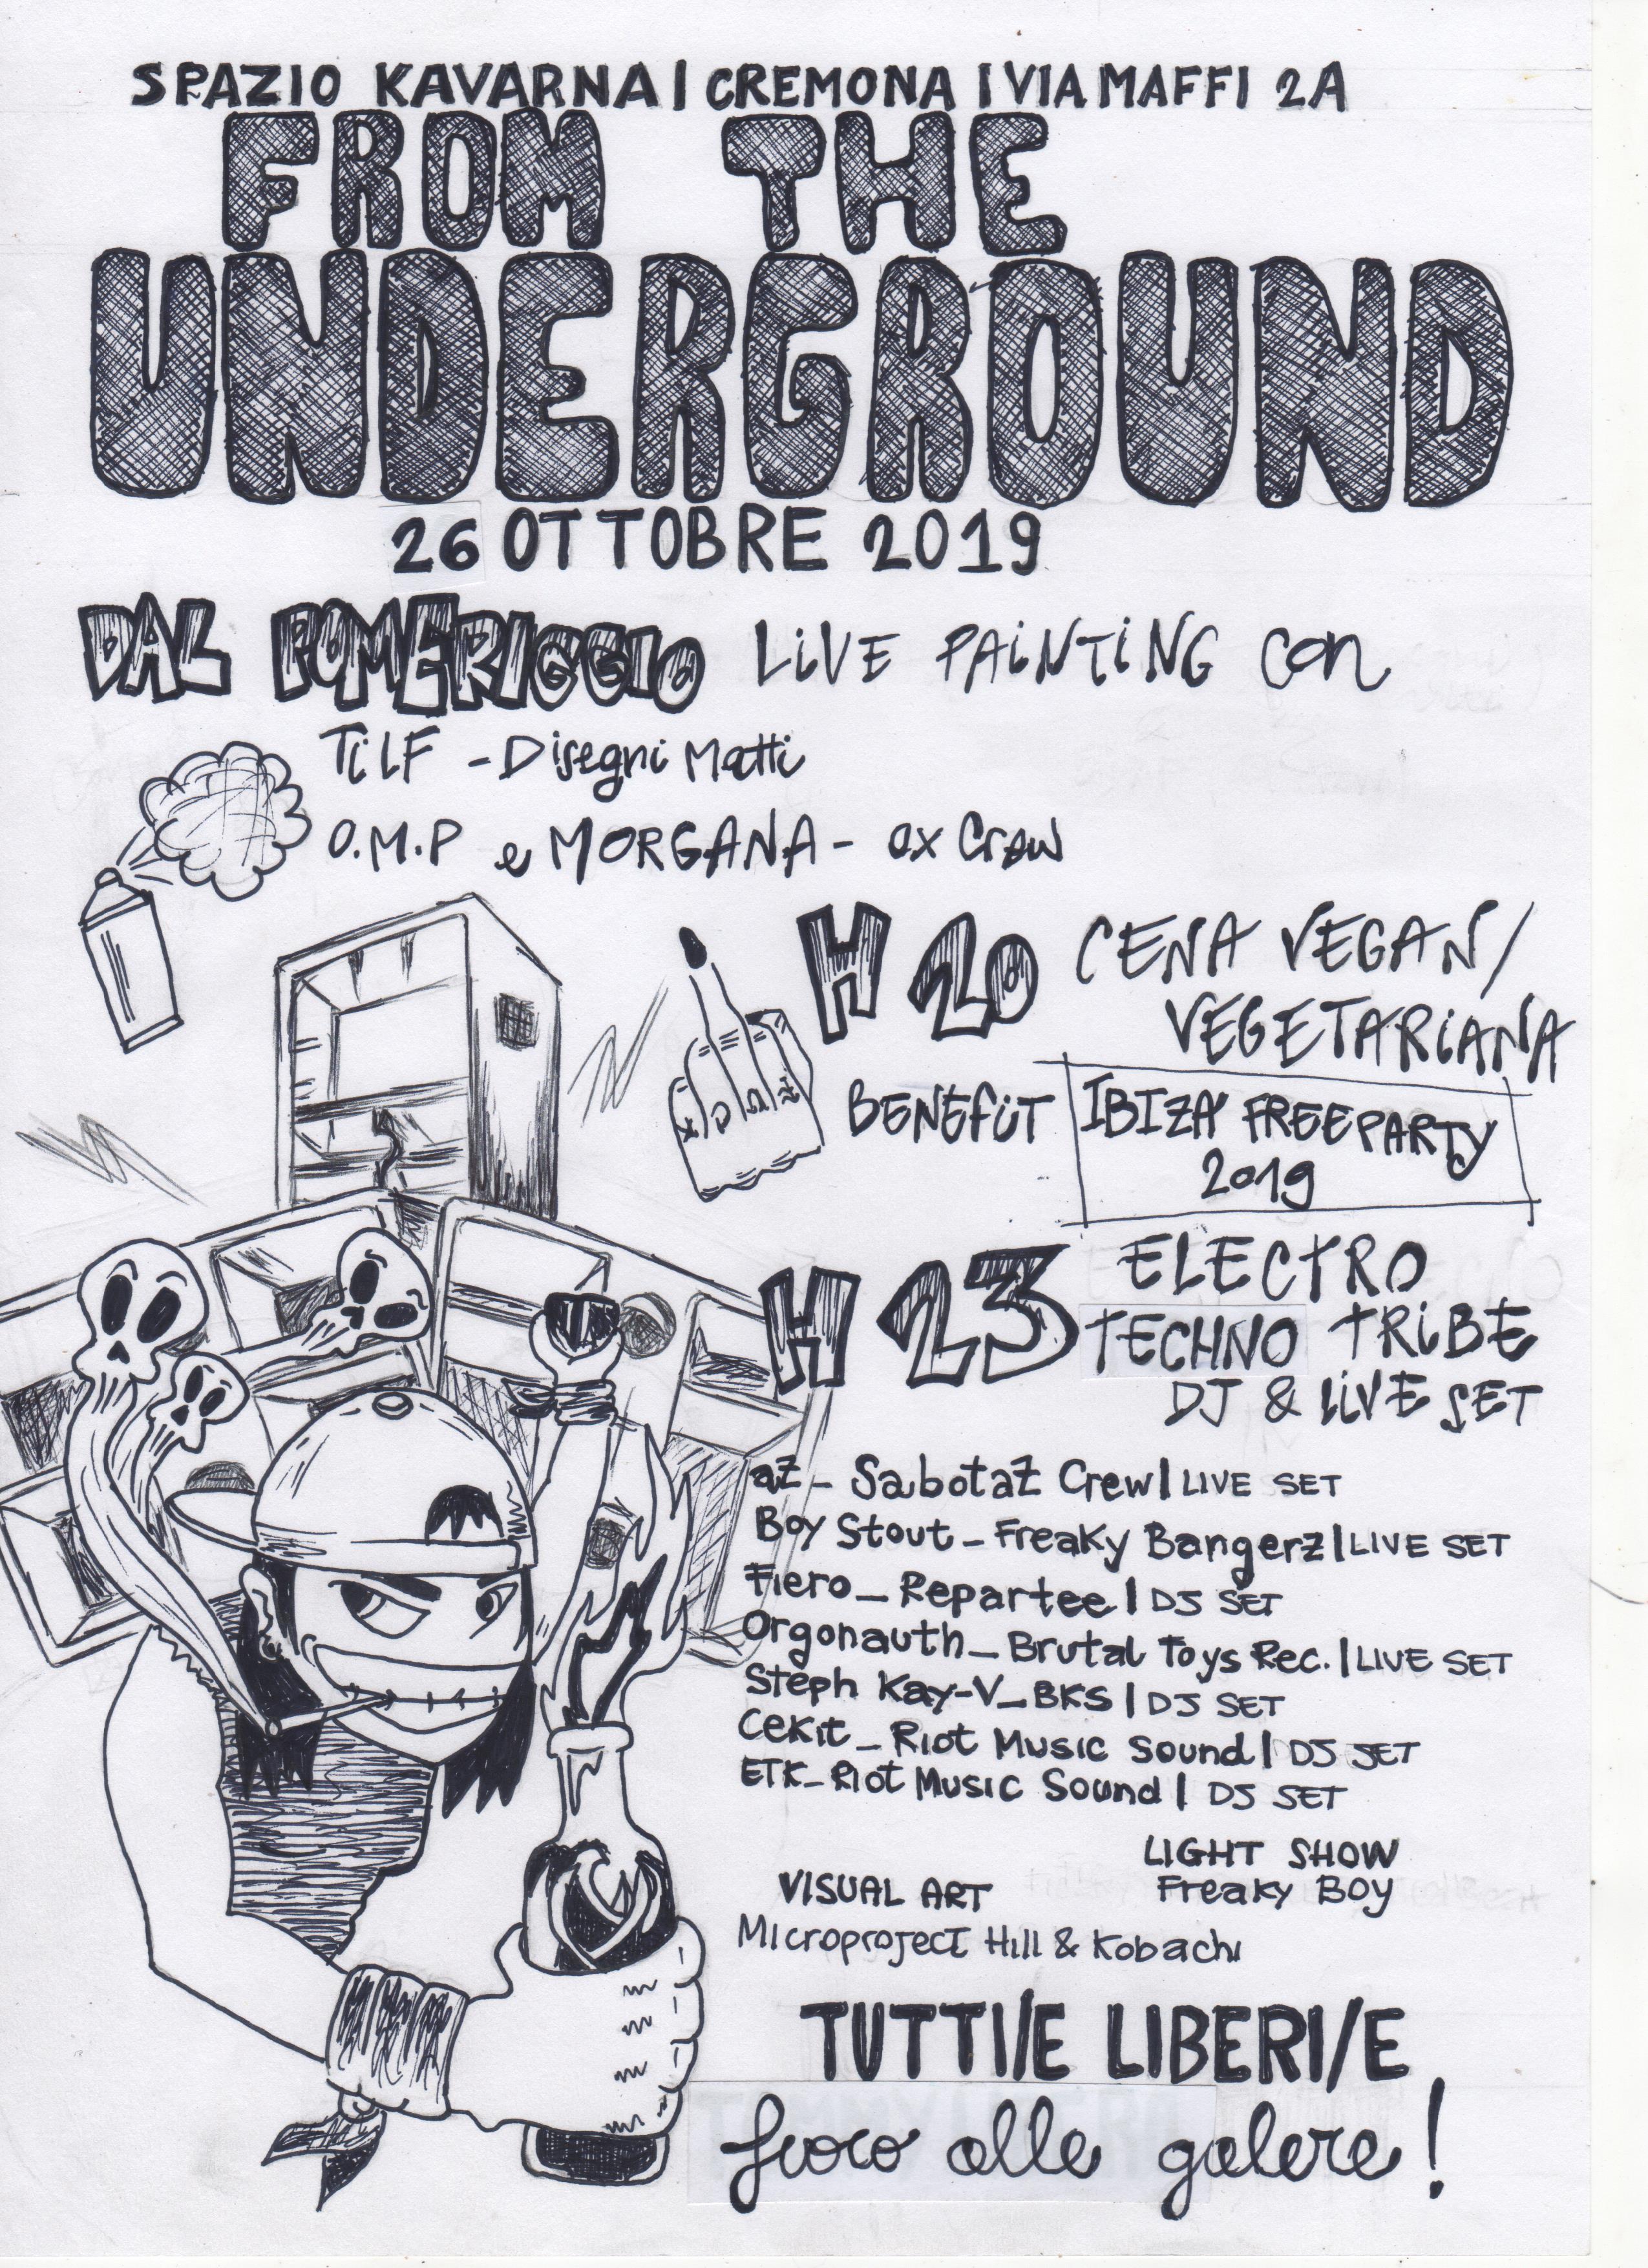 SPAZIO KAVARNA | CREMONA | VIA MAFFI 2A
FROM THE
UNDERGROUND
26 OTTOBRE 2019
DAL POMERIGGIO LiVE PAiNTiNG con
TiLF - Disegni Matti
O.M.P e MORGANA - ex Crew
H 20 CENA VEGAN/
VEGETARiANA
BENEFiT IBIZA' FREEPARTY
2019
H 23 ELECTRO
TECHNO TRiBE
DJ & LiVE SET
aZ_ SabotaZ Crew | LIVE SET
Boy Stout_ Freaky Bangerz | LIVE SET
Fiero_ Repartee | DJ SET
Orgonauth_ Brutal Toys Rec. | LIVE SET
Steph Kay-V_ BKS | DJ SET
Cekit_ Riot Music Sound | DJ SET
ETK_ Riot Music Sound | DJ SET
LIGHT SHOW
Freaky Boy
VISUAL ART
Microproject Hill & Kobachi
TUTTI/E LIBERI/E
fuoco alle galere!